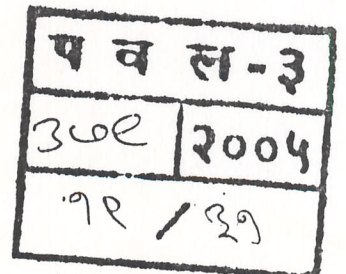 प व ल - ३
३७९ २००५
१९ / ३१